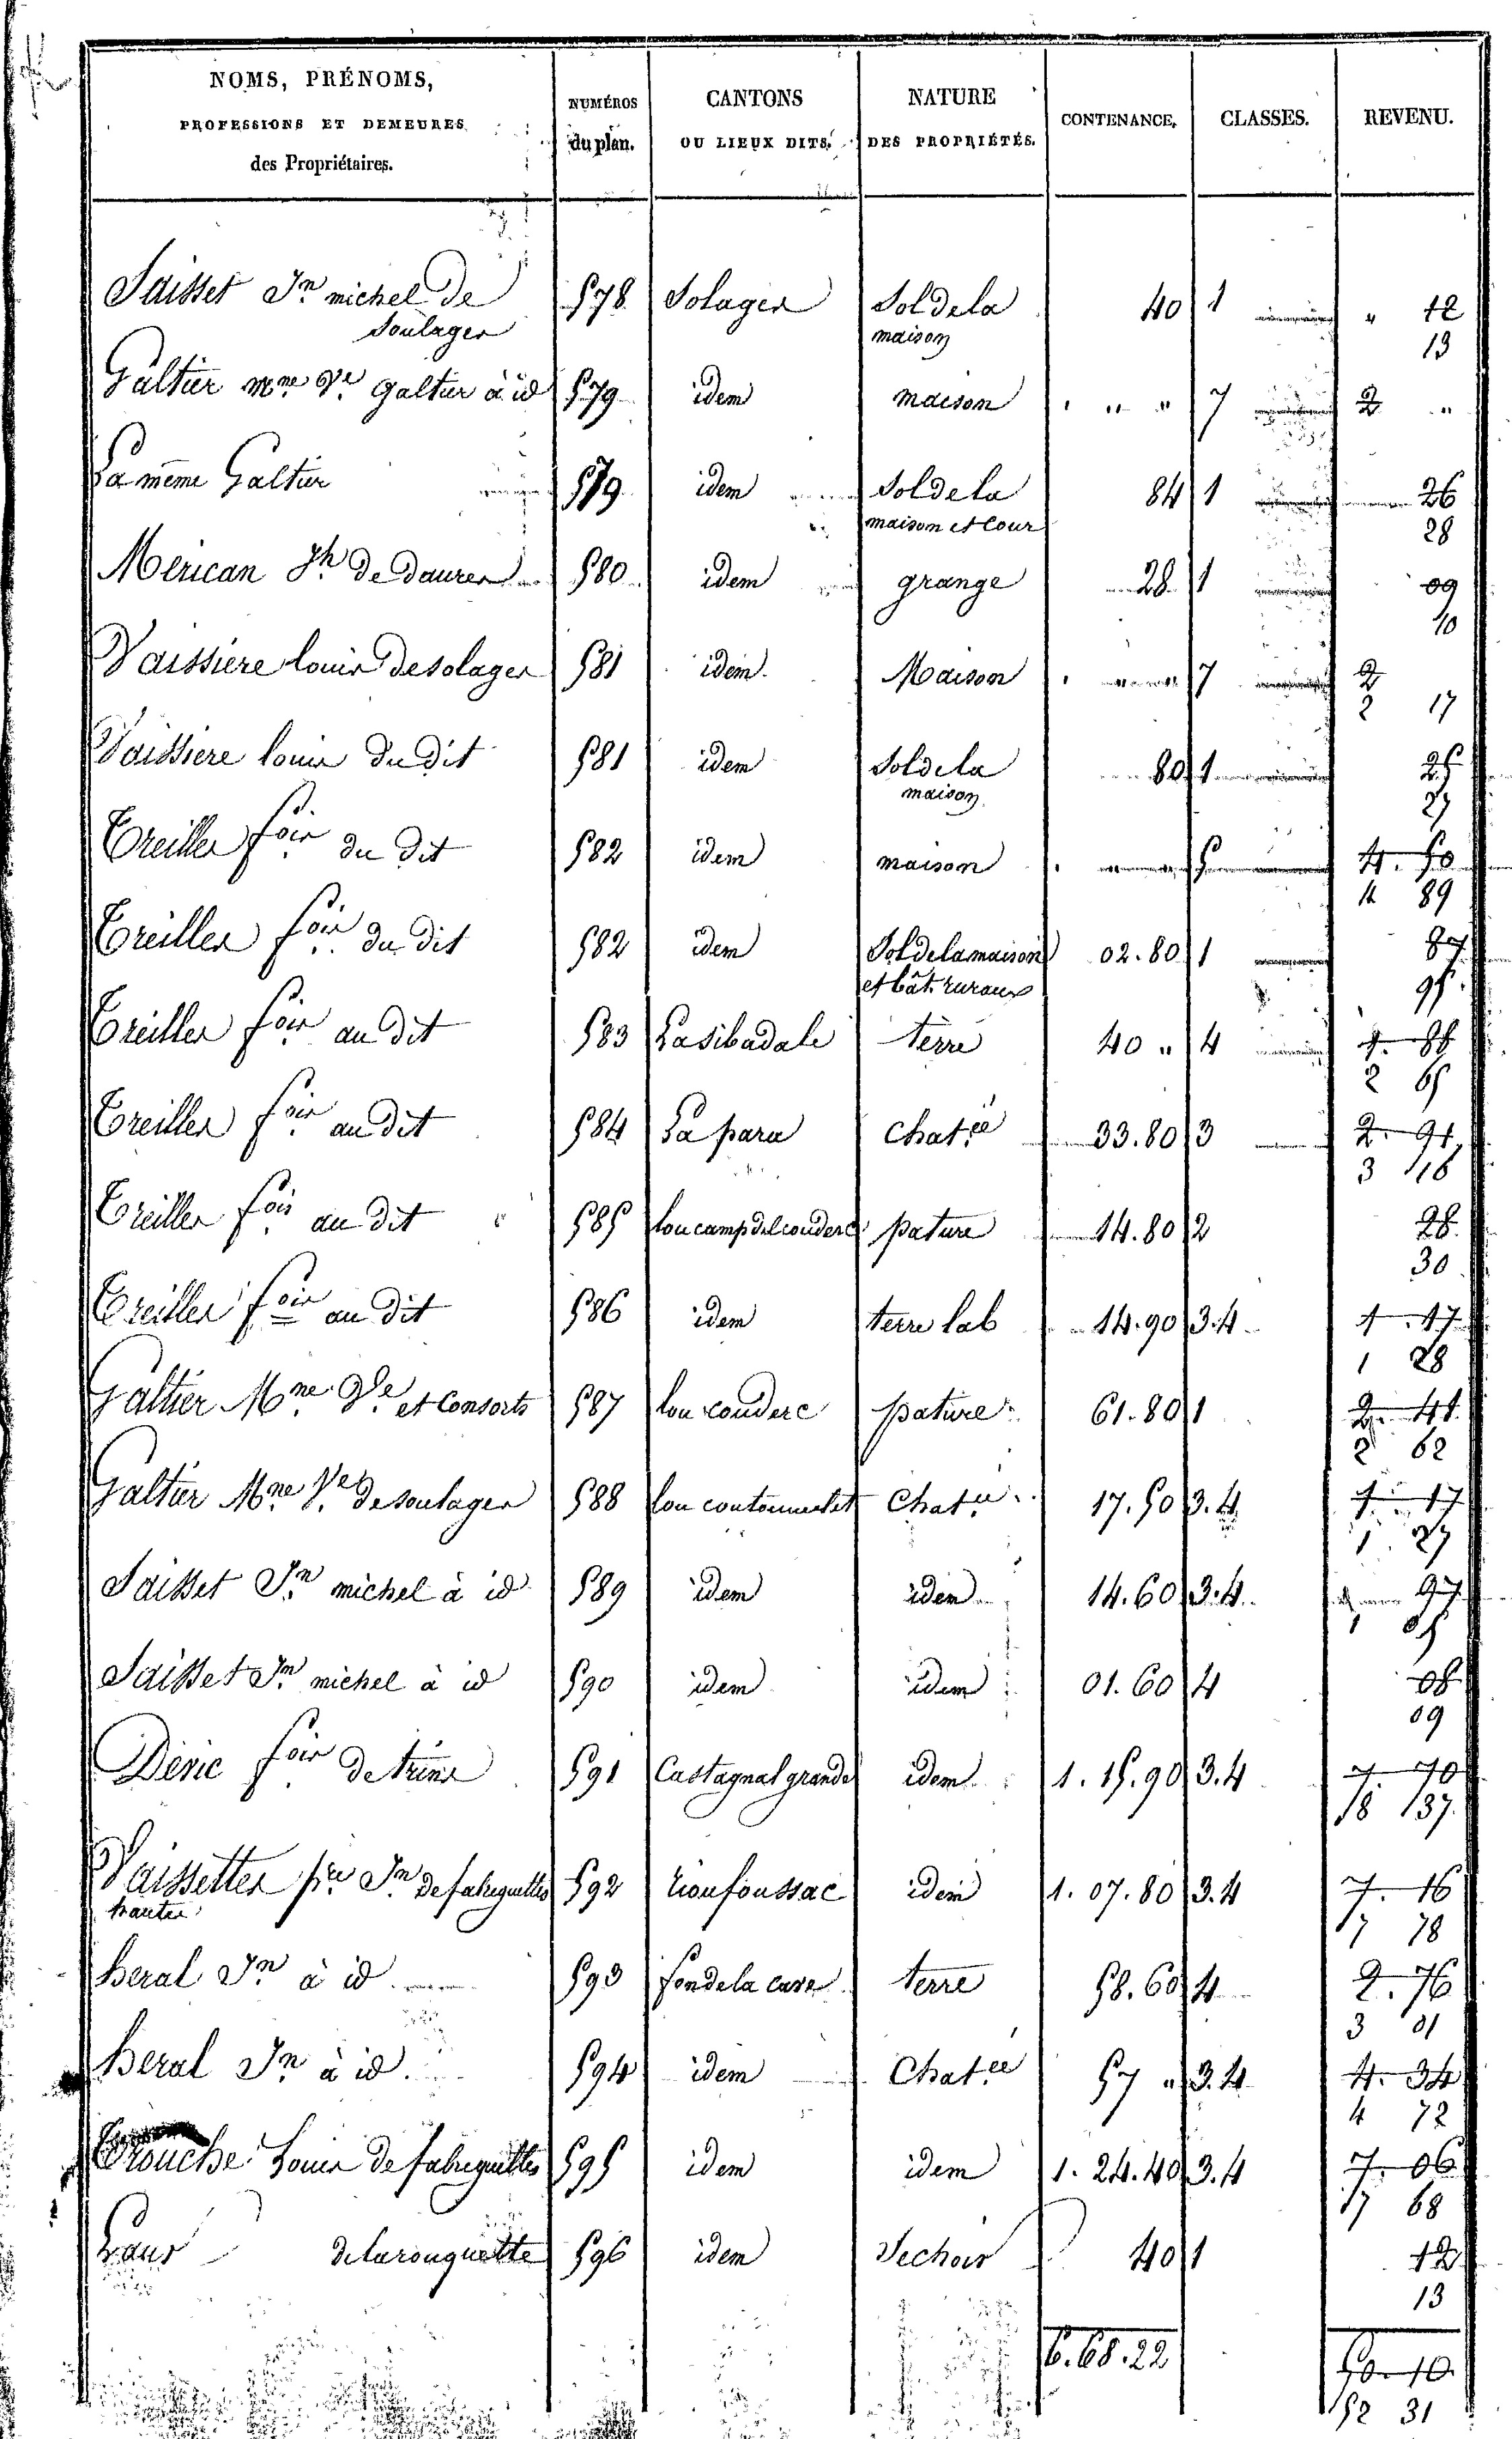 NOMS, PRÉNOMS,
PROFESSIONS ET DEMEURES
des Propriétaires.
NUMÉROS
du plan.
CANTONS
OU LIEUX DITS.
NATURE
DES PROPRIÉTÉS.
CONTENANCE.
CLASSES.
REVENU.
Saisset Jn michel de 578 Solages Sol de la 40 1 " 12
Soulages maison 13
Galtier Mne Ve Galtier à id 579 idem maison " " " 7 2 "
La même Galtier 579 idem Sol de la 84 1 26
maison et Cour 28
Merican Jh de Daures 580 idem grange 28 1 09
10
Vaissiere louis de solages 581 idem Maison 7 2
2 17
Vaissiere louis du dit 581 idem Sol de la 80 1 25
maison 27
Treilles fois du dit 582 idem maison 5 4. 50
4 89
Treilles fois du dit 582 idem Sol de la maison 02.80 1 87
et bât. ruraux 95
Treilles fois au dit 583 La sibadale terre 40 " 4 1. 88
2 05
Treilles fois au dit 584 La para Chatée 33.80 3 2. 91
3 16
Treilles fois au dit 585 lou camp del couderc pature 14.80 2 28
30
Treilles fois au dit 586 idem terre lab 14.90 3.4 1. 17
1 28
Galtier Mne Ve et Consorts 587 lou couderc pature 61.80 1 2. 41
2 62
Galtier Mne Ve de soulages 588 Chatée 17.50 3.4 1. 17
1 27
Saisset Jn michel à id 589 idem idem 14.60 3.4 97
1 05
Saisset Jn michel à id 590 idem idem 01.60 4 08
09
fois 591 Castagnal grande idem 1.15.90 3.4 7. 70
8 37
Vaissettes pre Jn de fabreguettes 592 rioufoussac idem 1.07.80 3.4 7. 16
hautes 7 78
Beral Jn à id 593 fon de la case terre 58.60 4 2. 76
3 01
Beral Jn à id 594 idem Chatée 57 " 3.4 4. 34
4 72
Trouche Louis de fabreguettes 595 idem idem 1.24.40 3.4 7. 06
7 68
de larouquette 596 idem Sechoir 40 1 12
13
6.68.22 50. 10
52 31